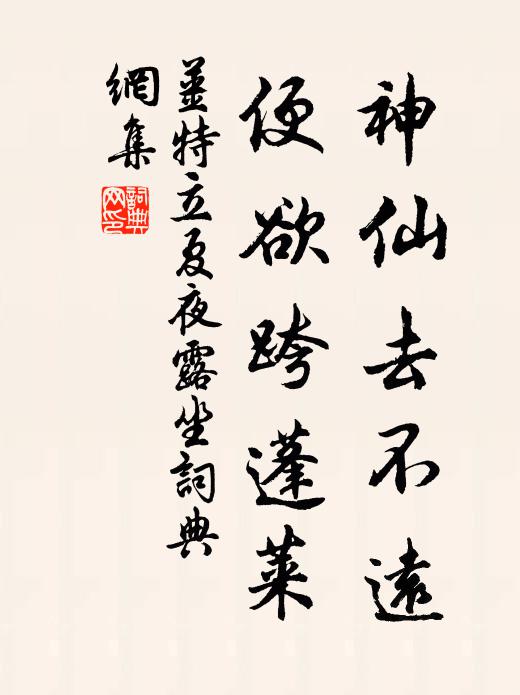 神仙去不遠
便欲跨蓬萊
姜特立夏夜露坐詞典
網集
詞典網印